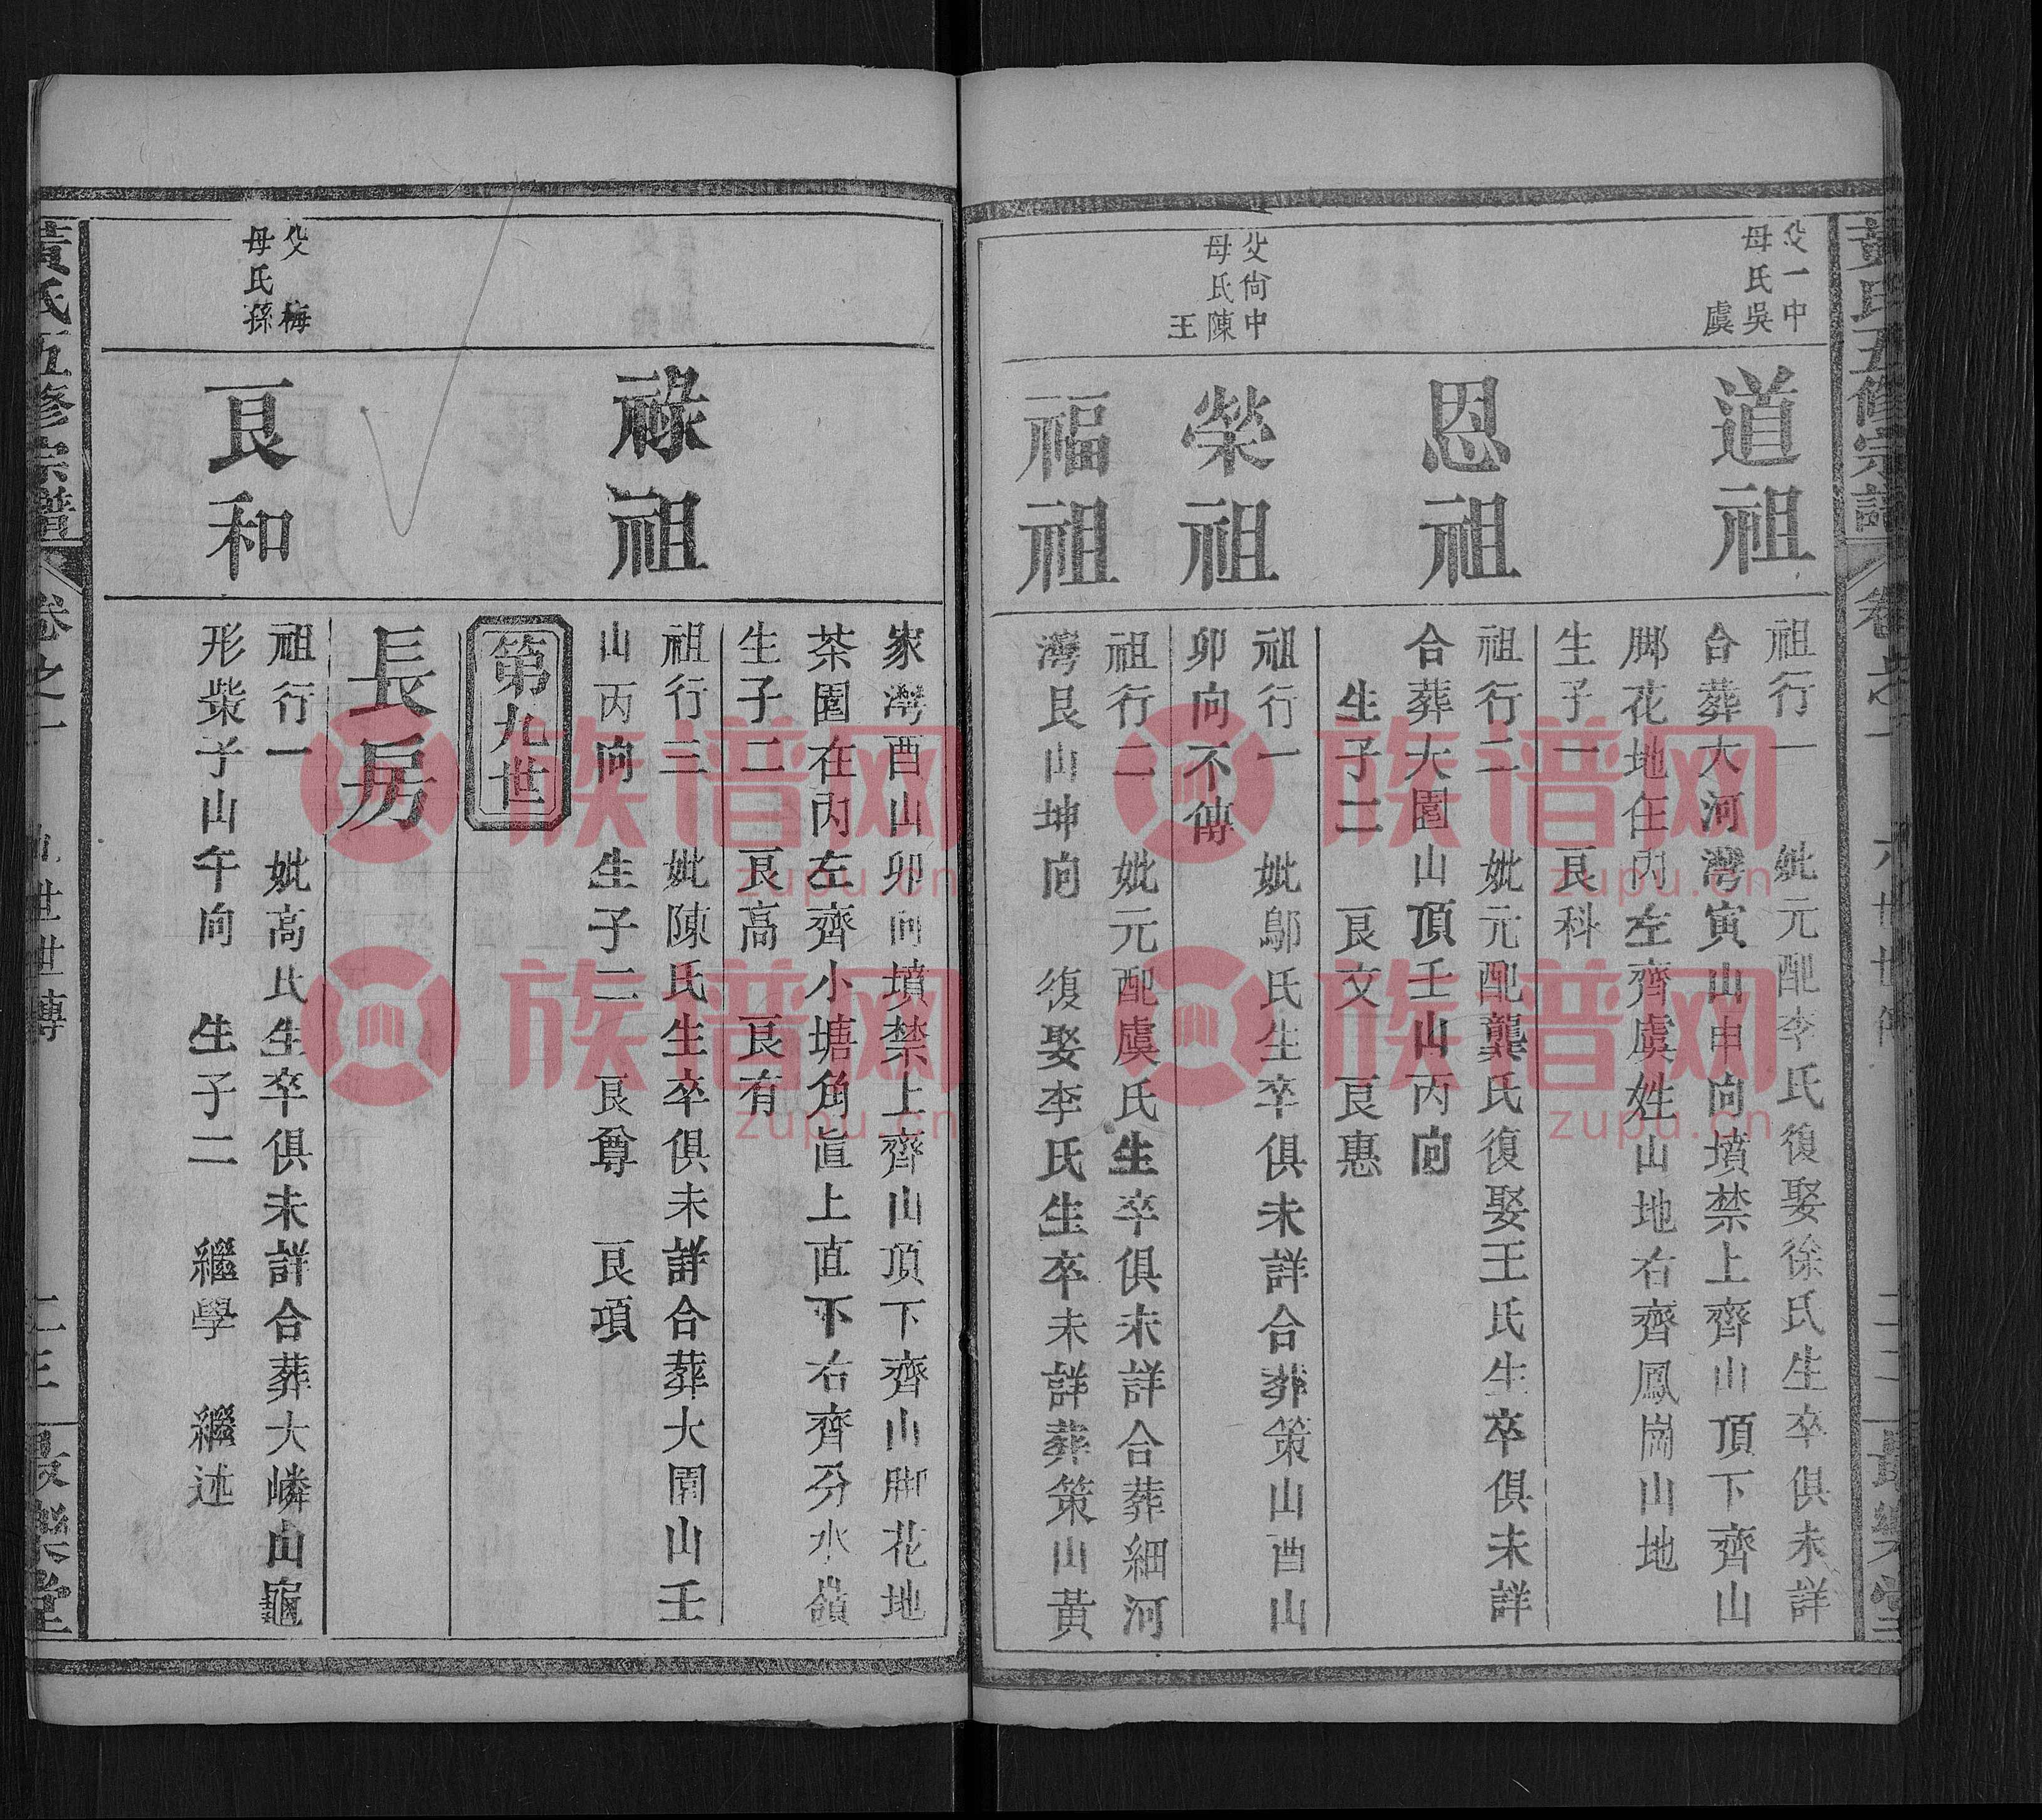 黃氏五修宗譜
卷之一
二二
父一中
母氏吳
虞
道祖
祖行一 妣元配李氏復娶徐氏生卒俱未詳
合葬大河灣寅山申向墳禁上齊山頂下齊山
脚花地在內左齊虞姓山地右齊鳳崗山地
生子一 艮科
恩祖
祖行二 妣元配龔氏復娶王氏生卒俱未詳
合葬大園山頂壬山丙向
生子二 艮文 艮惠
父尚中
母氏陳
王
榮祖
祖行一 妣鄔氏生卒俱未詳合葬策山酉山
卯向不傳
福祖
祖行二 妣元配虞氏生卒俱未詳合葬細河
灣艮山坤向 復娶李氏生卒未詳葬策山黃
家灣酉山卯向墳禁上齊山頂下齊山脚花地
茶園在內左齊小塘角直上直下右齊分水嶺
生子二 艮高 艮有
祿祖
祖行三 妣陳氏生卒俱未詳合葬大園山壬
山丙向 生子二 艮尊 艮項
第九世
長房
父 梅
母氏孫
艮和
祖行一 妣高氏生卒俱未詳合葬大嶙山龜
形柴子山午向 生子二 繼學 繼述
黃氏五修宗譜
卷之一
世世傳
二三
最樂堂
族谱网
zupu.cn
族谱网
zupu.cn
族谱网
zupu.cn
族谱网
zupu.cn